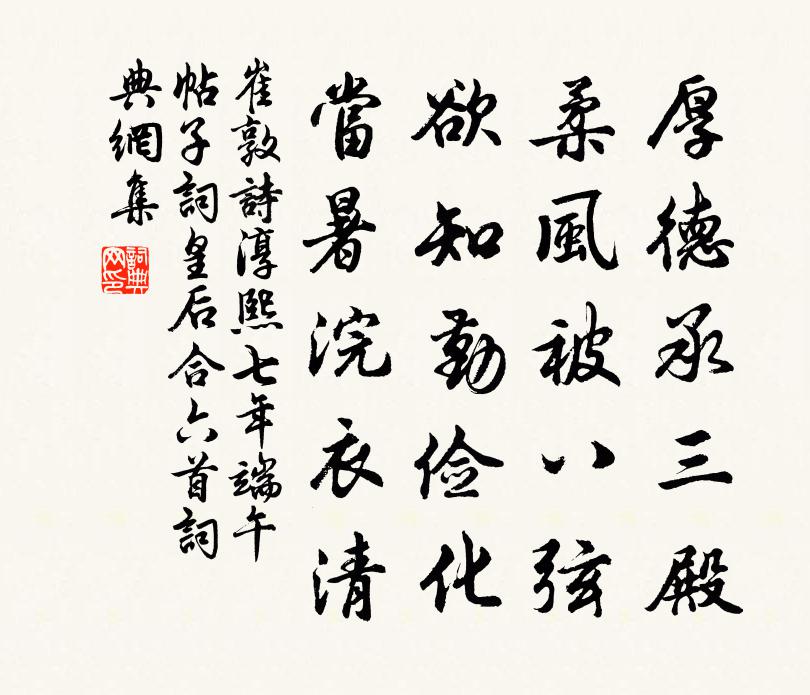 厚德承三殿
柔風被八弦
欲知勤俭化
當暑浣衣清
崔敦詩淳熙七年端午
帖子詞皇后合六首詞
典網集
詞典网印